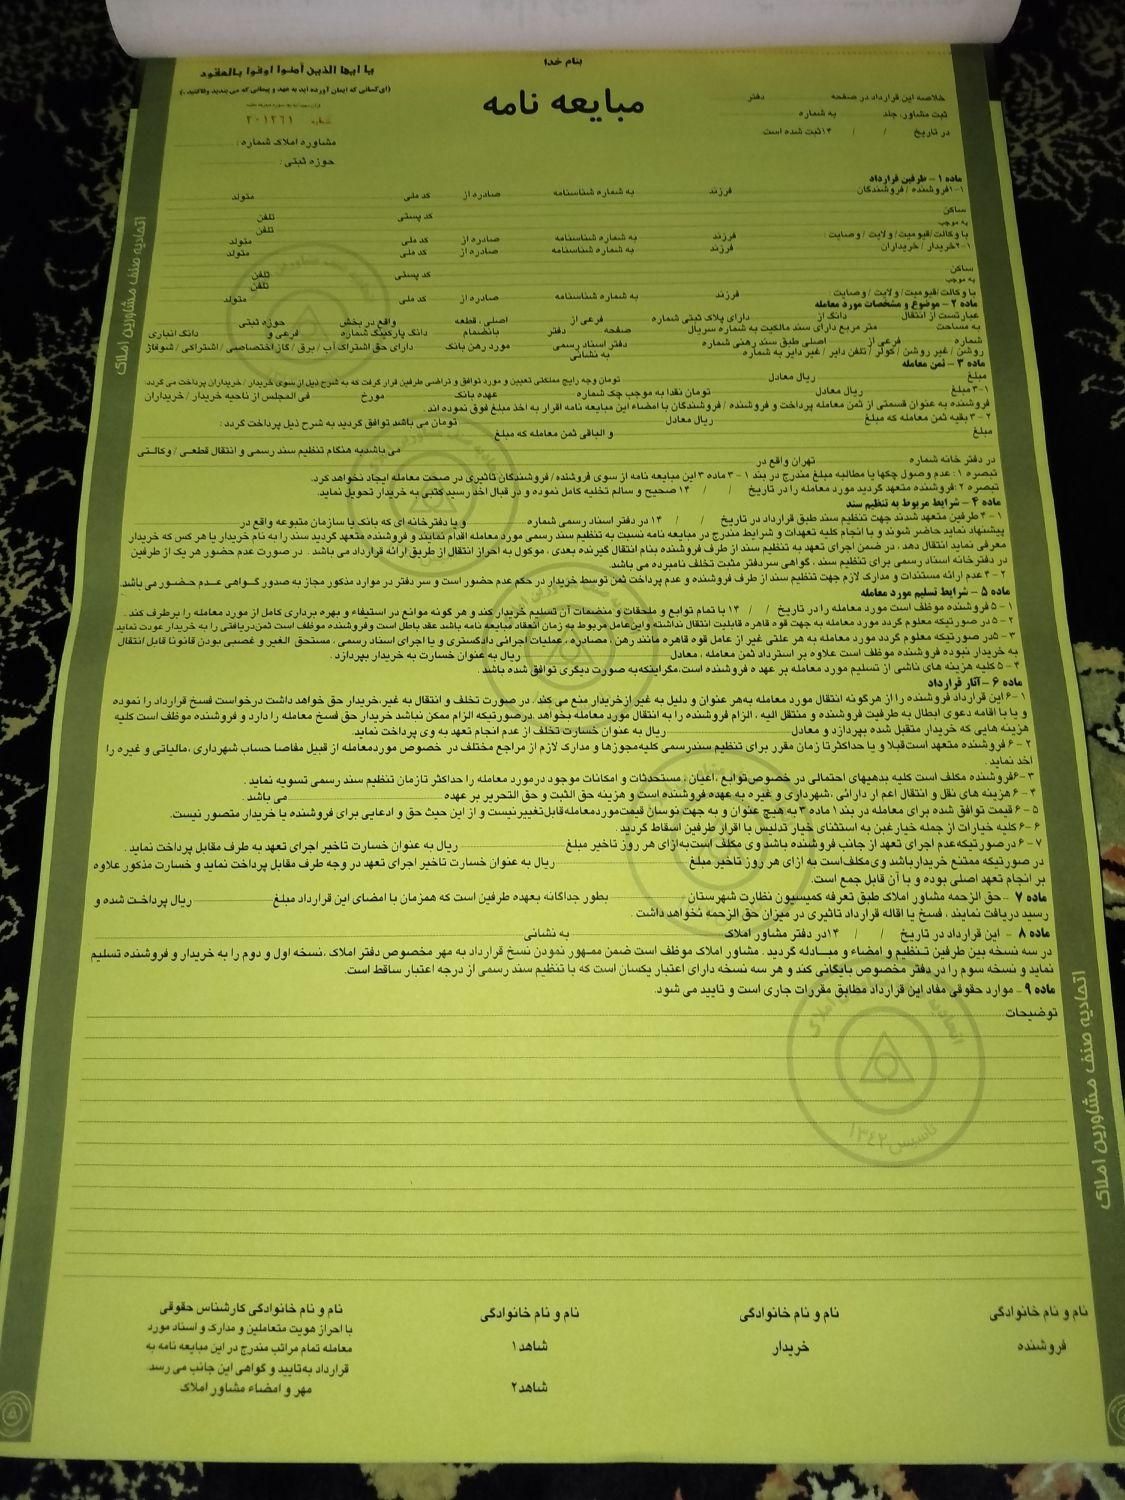 بنام خدا
یا ایها الذین آمنوا اوفوا بالعقود
(ای کسانی که ایمان آورده اید به عهد و پیمانی که می بندید وفا کنید.)
شماره ۲۰۱۲۶۱
مشاوره املاک شماره :
حوزه ثبتی :
مبایعه نامه
خلاصه این قرارداد در صفحه دفتر
ثبت مشاور، جلد به شماره
در تاریخ / / ۱۴ ثبت شده است
ماده ۱ - طرفین قرارداد
۱-۱فروشنده / فروشندگان فرزند به شماره شناسنامه صادره از کد ملی متولد
ساکن کد پستی تلفن
به موجب تلفن
با وکالت/قیومیت/ ولایت / وصایت : فرزند به شماره شناسنامه صادره از کد ملی متولد
۱-۲خریدار / خریداران فرزند به شماره شناسنامه صادره از کد ملی متولد
ساکن کد پستی تلفن
به موجب تلفن
با وکالت/قیومیت/ ولایت / وصایت : فرزند به شماره شناسنامه صادره از کد ملی متولد
ماده ۲ - موضوع و مشخصات مورد معامله
عبارتست از انتقال دانگ از دارای پلاک ثبتی شماره فرعی از اصلی ، قطعه واقع در بخش حوزه ثبتی
به مساحت متر مربع دارای سند مالکیت به شماره سریال صفحه دفتر بانضمام دانگ پارکینگ شماره فرعی و دانگ انباری
شماره فرعی از اصلی طبق سند رهنی شماره دفتر اسناد رسمی مورد رهن بانک دارای حق اشتراک آب / برق / گاز اختصاصی / اشتراکی / شوفاژ
روشن / غیر روشن / کولر / تلفن دایر / غیر دایر به شماره به نشانی
ماده ۳ - ثمن معامله
مبلغ ریال معادل تومان وجه رایج مملکتی تعیین و مورد توافق و تراضی طرفین قرار گرفت که به شرح ذیل از سوی خریدار / خریداران پرداخت می گردد:
۳-۱مبلغ ریال معادل تومان نقدا به موجب چک شماره عهده بانک مورخ فی المجلس از ناحیه خریدار / خریداران
فروشنده به عنوان قسمتی از ثمن معامله پرداخت و فروشنده / فروشندگان با امضاء این مبایعه نامه اقرار به اخذ مبلغ فوق نموده اند .
۳ - ۲ بقیه ثمن معامله که مبلغ ریال معادل تومان می باشد توافق گردید به شرح ذیل پرداخت گردد :
مبلغ و الباقی ثمن معامله که مبلغ
می باشد به هنگام تنظیم سند رسمی و انتقال قطعی / وکالتی
در دفتر خانه شماره تهران واقع در
تبصره ۱ : عدم وصول چکها یا مطالبه مبلغ مندرج در بند ۱ - ۳ ماده ۳ این مبایعه نامه از سوی فروشنده/ فروشندگان تاثیری در صحت معامله ایجاد نخواهد کرد.
تبصره ۲ :فروشنده متعهد گردید مورد معامله را در تاریخ / / ۱۴ صحیح و سالم تخلیه کامل نموده و در قبال اخذ رسید کتبی به خریدار تحویل نماید.
ماده ۴ - شرایط مربوط به تنظیم سند
۱ - ۴ طرفین متعهد شدند جهت تنظیم سند طبق قرارداد در تاریخ / / ۱۴ در دفتر اسناد رسمی شماره و یا دفترخانه ای که بانک یا سازمان متبوعه واقع در
پیشنهاد نماید حاضر شوند و با انجام کلیه تعهدات و شرایط مندرج در مبایعه نامه نسبت به تنظیم سند رسمی مورد معامله اقدام نمایند و فروشنده متعهد گردید سند را به نام خریدار یا هر کس که خریدار
معرفی نماید انتقال دهد ، در ضمن اجرای تعهد به تنظیم سند از طرف فروشنده بنام انتقال گیرنده بعدی ، موکول به احراز انتقال از طریق ارائه قرارداد می باشد . در صورت عدم حضور هر یک از طرفین
در دفترخانه اسناد رسمی برای تنظیم سند ، گواهی سردفتر مثبت تخلف نامبرده می باشد.
۲ - ۴عدم ارائه مستندات و مدارک لازم جهت تنظیم سند از طرف فروشنده و عدم پرداخت ثمن توسط خریدار در حکم عدم حضور است و سر دفتر در موارد مذکور مجاز به صدور گـواهی عـدم حـضـور می باشد.
ماده ۵ - شرایط تسلیم مورد معامله
۱ - ۵ فروشنده موظف است مورد معامله را در تاریخ / / ۱۴ با تمام توابع و ملحقات و منضمات آن تسلیم خریدار کند و هر گونه موانع در استیفاء و بهره برداری کامل از مورد معامله را برطرف کند .
۲ - ۵ در صورتیکه معلوم گردد مورد معامله به جهت قوه قاهره قابلیت انتقال نداشته واین عامل مربوط به زمان انعقاد مبایعه نامه باشد عقد باطل است و فروشنده موظف است ثمن دریافتی را به خریدار عودت نماید.
۳ - ۵در صورتیکه معلوم گردد مورد معامله به هر علتی غیر از عامل قوه قاهره مانند رهن ، مصادره ، عملیات اجرائی دادگستری و یا اجرای اسناد رسمی ، مستحق الغیر و غصبی بودن قانونا قابل انتقال
به خریدار نبوده فروشنده موظف است علاوه بر استرداد ثمن معامله ، معادل ریال به عنوان خسارت به خریدار بپردازد .
۴ - ۵ کلیه هزینه های ناشی از تسلیم مورد معامله بر عهده فروشنده است،مگراینکه به صورت دیگری توافق شده باشد .
ماده ۶ - آثار قرارداد
۱-۶ این قرارداد فروشنده را از هرگونه انتقال مورد معامله به هر عنوان و دلیل به غیر از خریدار منع می کند . در صورت تخلف و انتقال به غیر،خریدار حق خواهد داشت درخواست فسخ قرارداد را نموده
و یا با اقامه دعوی ابطال به طرفیت فروشنده و منتقل الیه ، الزام فروشنده را به انتقال مورد معامله بخواهد .درصورتیکه الزام ممکن نباشد خریدار حق فسخ معامله را دارد و فروشنده موظف است کلیه
هزینه هایی که خریدار متقبل شده بپردازد و معادل ریال به عنوان خسارت تخلف از عدم انجام تعهد به وی پرداخت نماید.
۲ - ۶ فروشنده متعهد است قبلا و یا حداکثر تا زمان مقرر برای تنظیم سند رسمی کلیه مجوزها و مدارک لازم از مراجع مختلف در خصوص مورد معامله از قبیل مفاصا حساب شهرداری ،مالیاتی و غیره را
اخذ نماید .
۳-۶فروشنده مکلف است کلیه بدهیهای احتمالی در خصوص توابع ،اعیان ، مستحدثات و امکانات موجود درمورد معامله را حداکثر تازمان تنظیم سند رسمی تسویه نماید .
۴ - ۶ هزینه های نقل و انتقال اعم از دارائی ،شهرداری و غیره به عهده فروشنده است و هزینه حق الثبت و حق التحریر بر عهده می باشد .
۵ - ۶ قیمت توافق شده برای معامله در بند ۱ ماده ۳ به هیچ عنوان و به جهت نوسان قیمت مورد معامله قابل تغییر نیست و از این حیث حق و ادعایی برای فروشنده یا خریدار متصور نیست.
۶-۶ کلیه خیارات از جمله خیار غبن به استثنای خیار تدلیس با اقرار طرفین اسقاط گردید.
۷ - ۶ در صورتیکه عدم اجرای تعهد از جانب فروشنده باشد وی مکلف است به ازای هر روز تاخیر مبلغ ریال به عنوان خسارت تاخیر اجرای تعهد به طرف مقابل پرداخت نماید .
در صورتیکه ممتنع خریدار باشد وی مکلف است به ازای هر روز تاخیر مبلغ ریال به عنوان خسارت تاخیر اجرای تعهد در وجه طرف مقابل پرداخت نماید و خسارت مذکور علاوه
بر انجام تعهد اصلی بوده و با آن قابل جمع است.
ماده ۷ - حق الزحمه مشاور املاک طبق تعرفه کمیسیون نظارت شهرستان بطور جداگانه بعهده طرفین است که همزمان با امضای این قرارداد مبلغ ریال پرداخت شده و
رسید دریافت نمایند ، فسخ یا اقاله قرارداد تاثیری در میزان حق الزحمه نخواهد داشت .
ماده ۸ - این قرارداد در تاریخ / / ۱۴در دفتر مشاور املاک به نشانی
در سه نسخه بین طرفین تـنظیم و امضاء و مبـــادله گردید . مشاور املاک موظف است ضمن ممـهور نمودن نسخ قرارداد به مهر مخصوص دفتر املاک ،نسخه اول و دوم را به خریدار و فروشنده تسلیم
نماید و نسخه سوم را در دفتر مخصوص بایگانی کند و هر سه نسخه دارای اعتبار یکسان است که با تنظیم سند رسمی از درجه اعتبار ساقط است.
ماده ۹ - موارد حقوقی مفاد این قرارداد مطابق مقررات جاری است و تایید می شود.
توضیحات
نام و نام خانوادگی
فروشنده
نام و نام خانوادگی
خریدار
نام و نام خانوادگی
شاهد۱
شاهد۲
نام و نام خانوادگی کارشناس حقوقی
با احراز هویت متعاملین و مدارک و اسناد مورد
معامله تمام مراتب مندرج در این مبایعه نامه به
قرارداد به تایید و گواهی این جانب می رسد.
مهر و امضاء مشاور املاک
اتحادیه صنف مشاورین املاک
اتحادیه صنف مشاورین املاک
تاسیس ۱۳۴۲